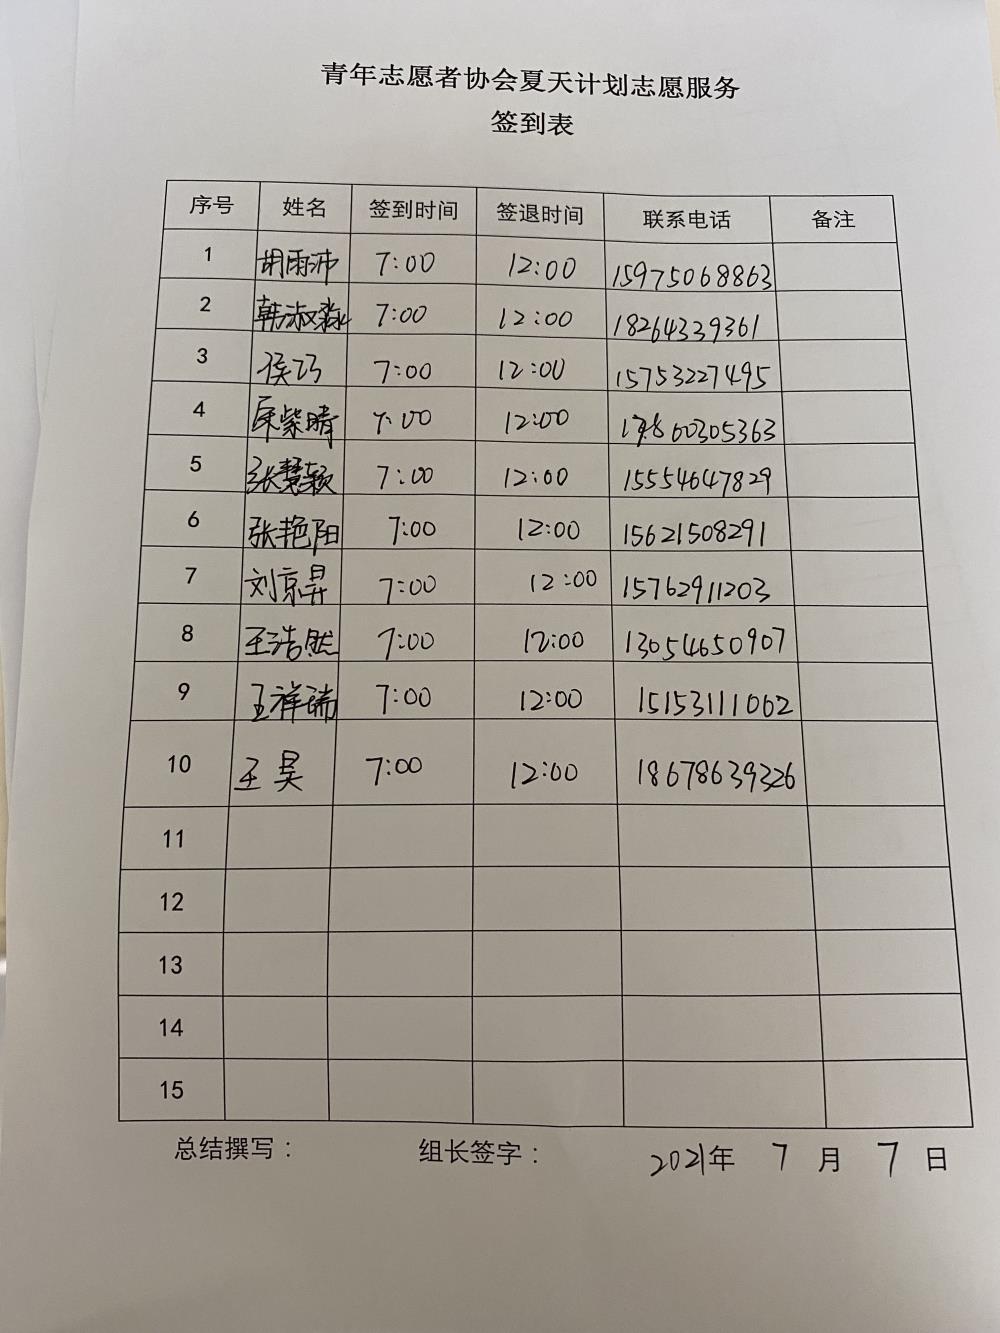 青年志愿者协会夏天计划志愿服务
签到表
序号 姓名 签到时间 签退时间 联系电话 备注
1 胡雨沛 7:00 12:00 15975068863
2 韩淑淼 7:00 12:00 18264339361
3 侯巧 7:00 12:00 15753227495
4 紫晴 7:00 12:00 17860305363
5 张慧颖 7:00 12:00 15554647829
6 张艳阳 7:00 12:00 15621508291
7 刘京昇 7:00 12:00 15762911203
8 王浩然 7:00 12:00 13054650907
9 王祥瑞 7:00 12:00 15153111062
10 王昊 7:00 12:00 18678639326
11
12
13
14
15
总结撰写： 组长签字： 2021年 7 月 7 日